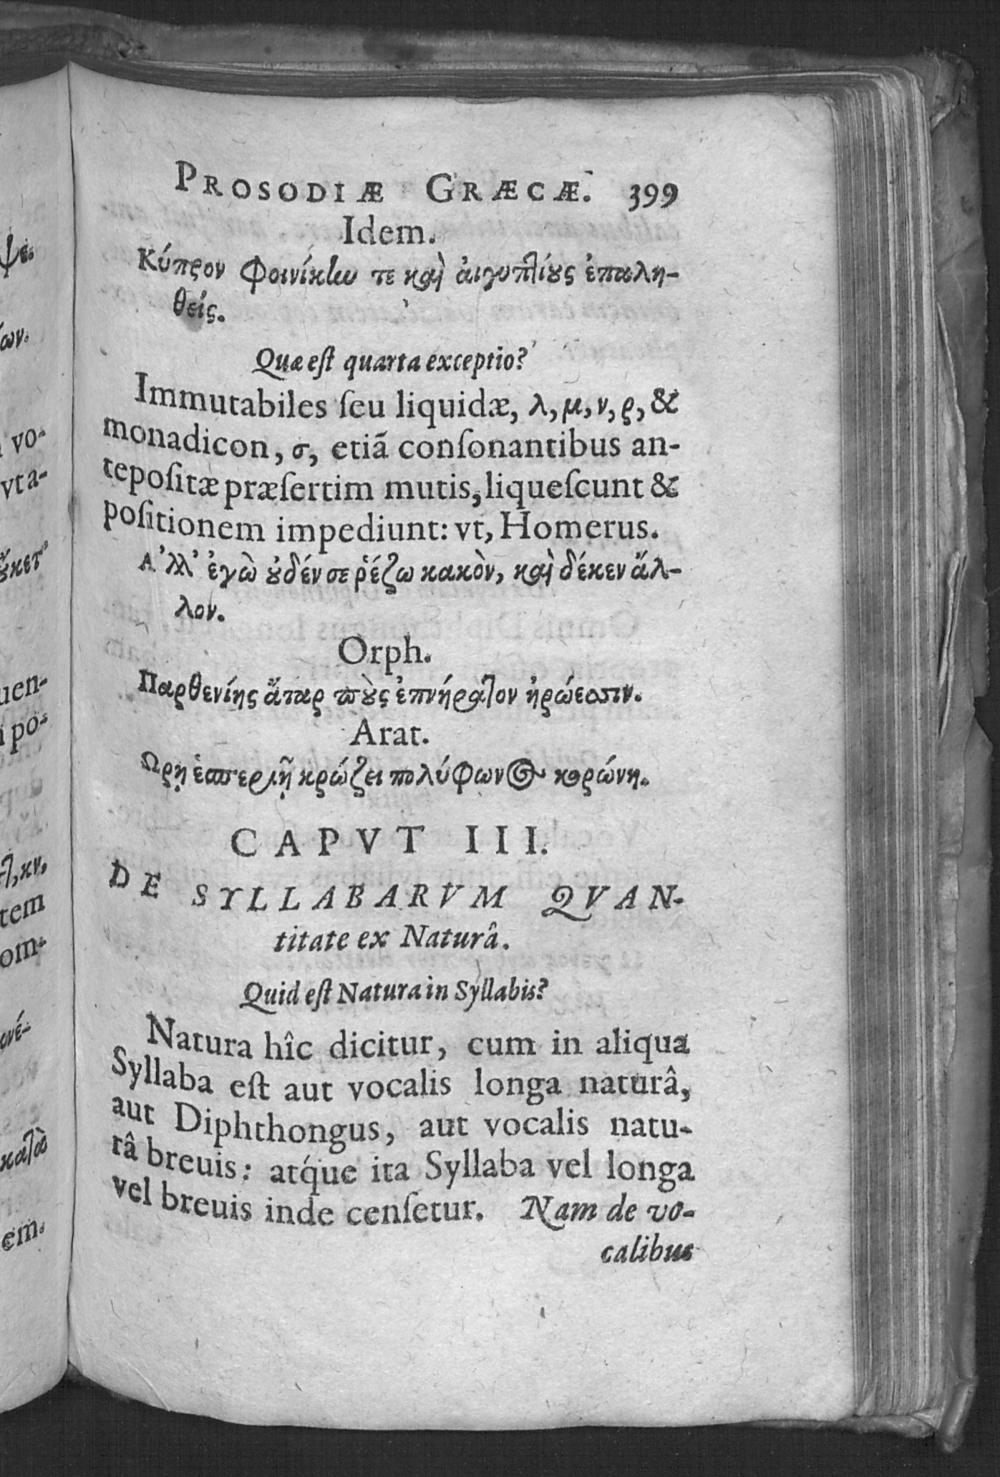 PROSODIÆ GRÆCÆ. 399
Idem.
Κύπρον Φοινίκlω τε καὶ ἀιγυπτίους ἐπαλη-
θείς.
Quæ eſt quarta exceptio?
Immutabiles ſeu liquidæ, λ, μ, ν, ρ, &
monadicon, σ, etiã conſonantibus an-
tepoſitæ præſertim mutis, liqueſcunt &
poſitionem impediunt: vt, Homerus.
Α᾿λλ᾿ ἐγὼ ουδέν σε ῥέζω κακὸν, καὶ δέκεν ἄλ-
λον.
Orph.
Παρθενίης ἄταρ τοὺς ἐπνήρατον ἡρώεσσιν.
Arat.
Ωρῃ ἑσπερίῃ κρώζει πολύφωνος κορώνη.
CAPVT III.
DE SYLLABARVM QVAN-
titate ex Naturâ.
Quid eſt Natura in Syllabis?
Natura hîc dicitur, cum in aliqua
Syllaba eſt aut vocalis longa naturâ,
aut Diphthongus, aut vocalis natu-
râ breuis: atq́ue ita Syllaba vel longa
vel breuis inde cenſetur. Nam de vo-
calibus
ψε.
ων.
vo-
vta-
ὔκετ᾿
uen-
i pò-
τλ, κν,
tem
om-
ωνέ-
κατὰ
em.